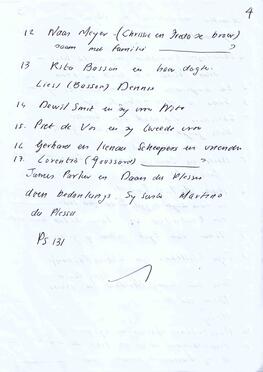 4
12 Naas Meyer - (Chrissie en Hesto se broer)
saam met familie ?
13 Rita Bosson en haar dogter
Liesl (Bosson) Dennis
14 Dawil Smit en sy vrou Nita
15. Piet de Vos en sy tweede vrou
16 Gerhard en Lienau Scheepers en vriende
17. Lorentia (Goussard) ?
James Parker en Daan du Plessis
doen bedankings. Sy sanie Martino
du Plessis
Ps 131